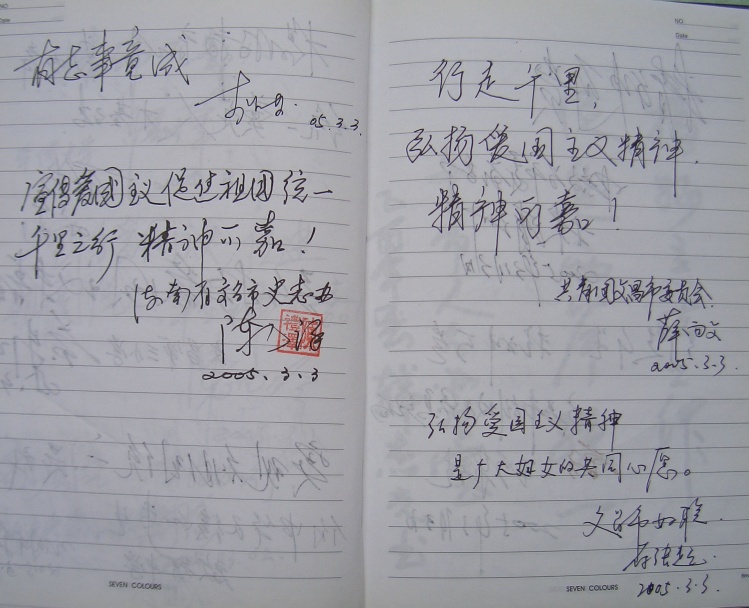 有志事竟成
05.3.3.
宣传爱國主义促进祖国统一
千里之行 精神可嘉!
海南省文昌市史志办
陈
2005.3.3
SEVEN COLOURS
NO
Date
行走千里,
弘扬爱国主义精神.
精神可嘉!
共青团文昌市委员会
薛
2005.3.3.
弘扬爱国主义精神
是广大妇女的共同心愿。
文昌市妇联
2005.3.3.
SEVEN COLOURS